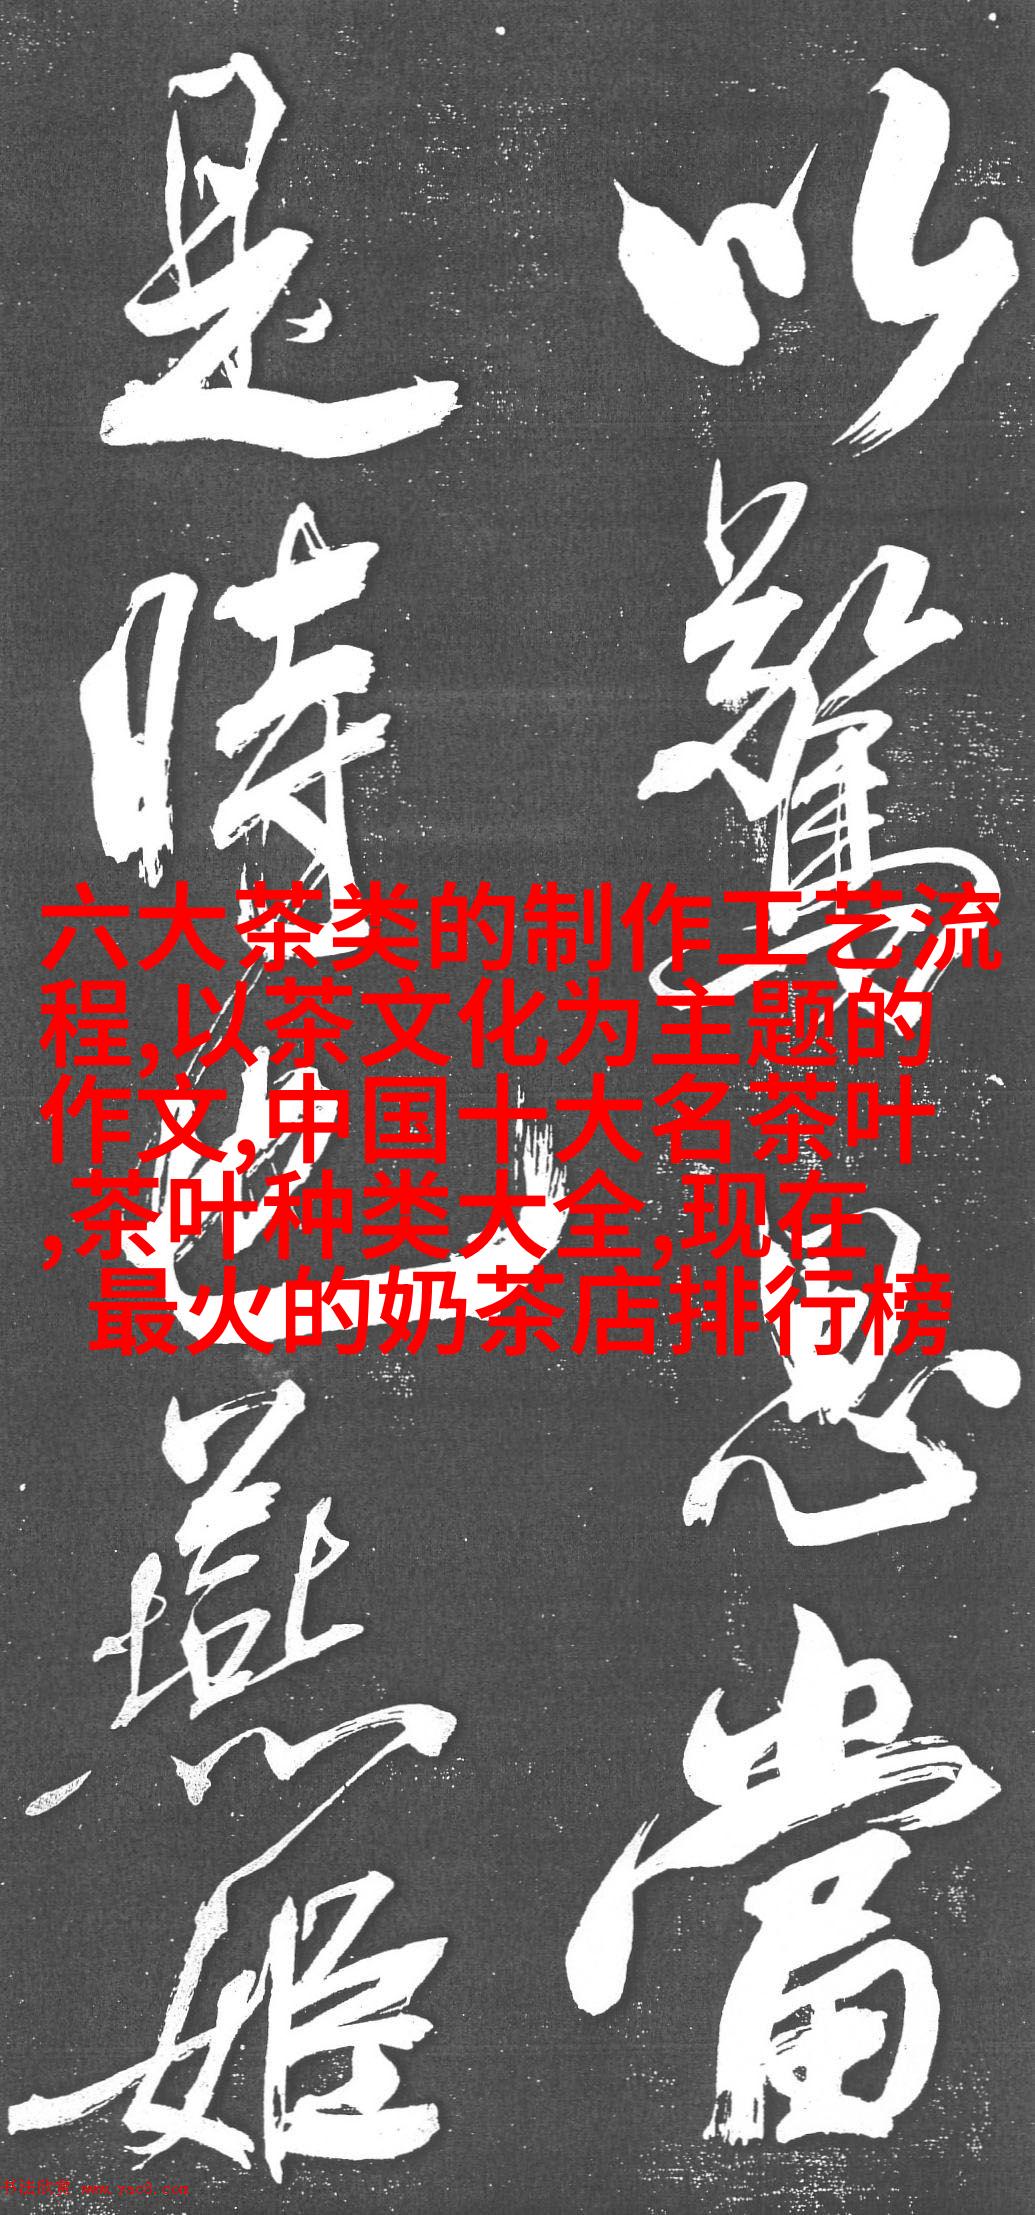 以驚忌當
是時也燕姬
六大茶类的制作工艺流
程,以茶文化为主题的
作文,中国十大名茶叶
,茶叶种类大全,现在
最火的奶茶店排行榜
书法欣赏 www.yac8.com